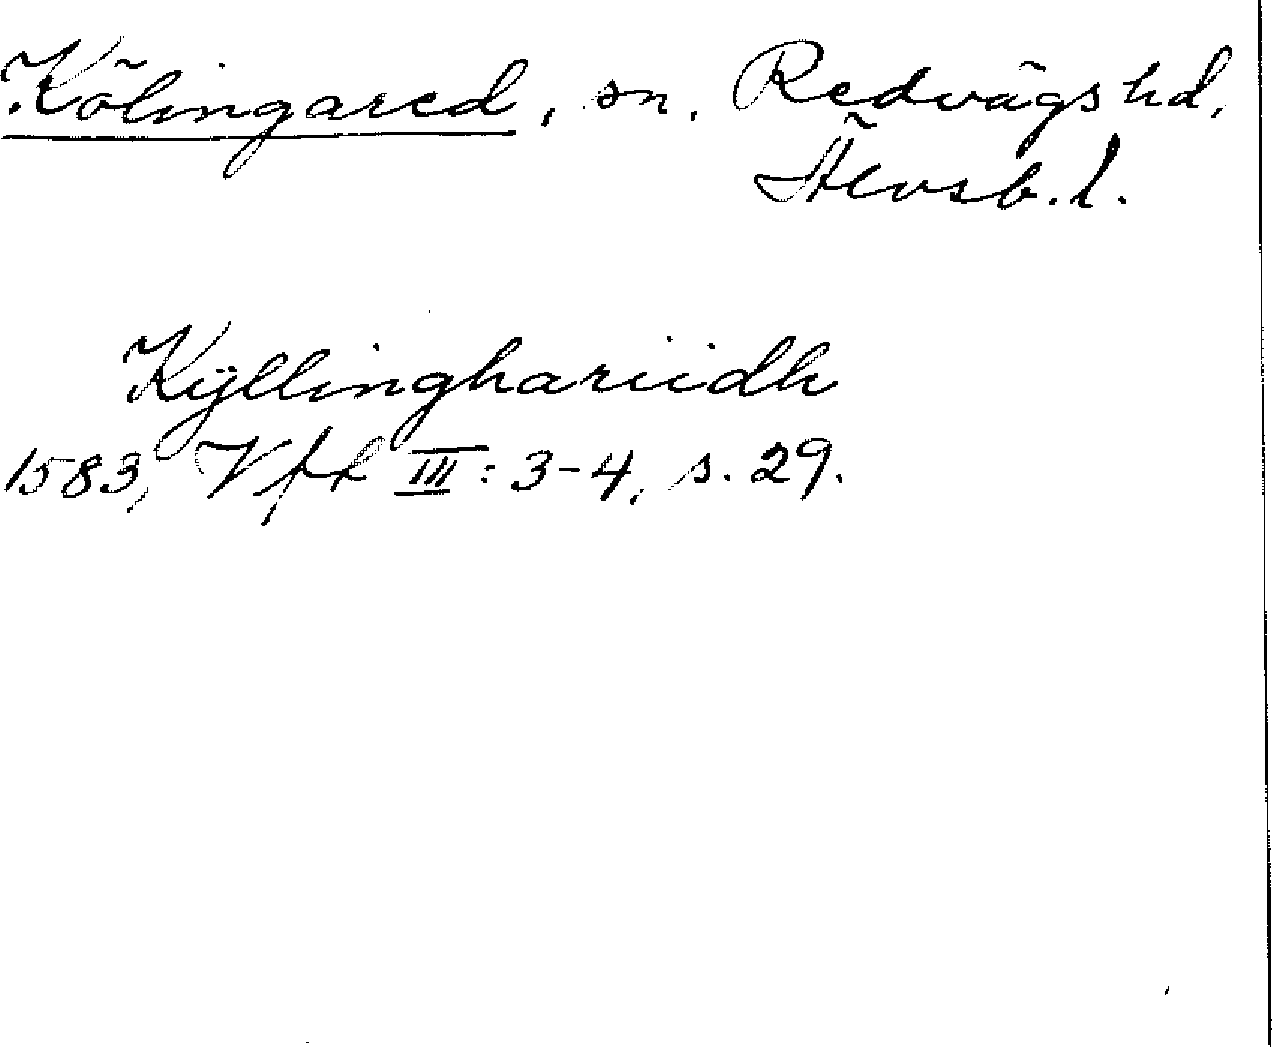 Kölingared, sn. Redvägs hd,
Älvsb. l.
Kÿllinghariidh
1583, Vft III: 3-4, s. 29.